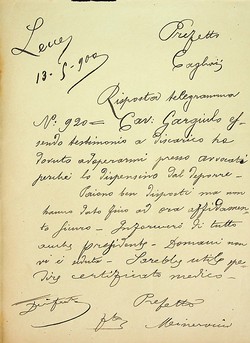 Lecce
13-5-900
Prefetto
Cagliari
Risposta telegramma
N.° 920 = Cav. Gargiulo es
sendo testimonio a discarico ha
dovuto adoperarmi presso avvocati
perché lo dispensino dal deporre.
Paiono ben disposti ma non
hanno dato fino ad ora affidamento
sicuro. Informerò di tutto
anche presidente. Domani non
vi è udienza. Sarebbe utile spe
dire certificato medico.
Prefetto
Minervini